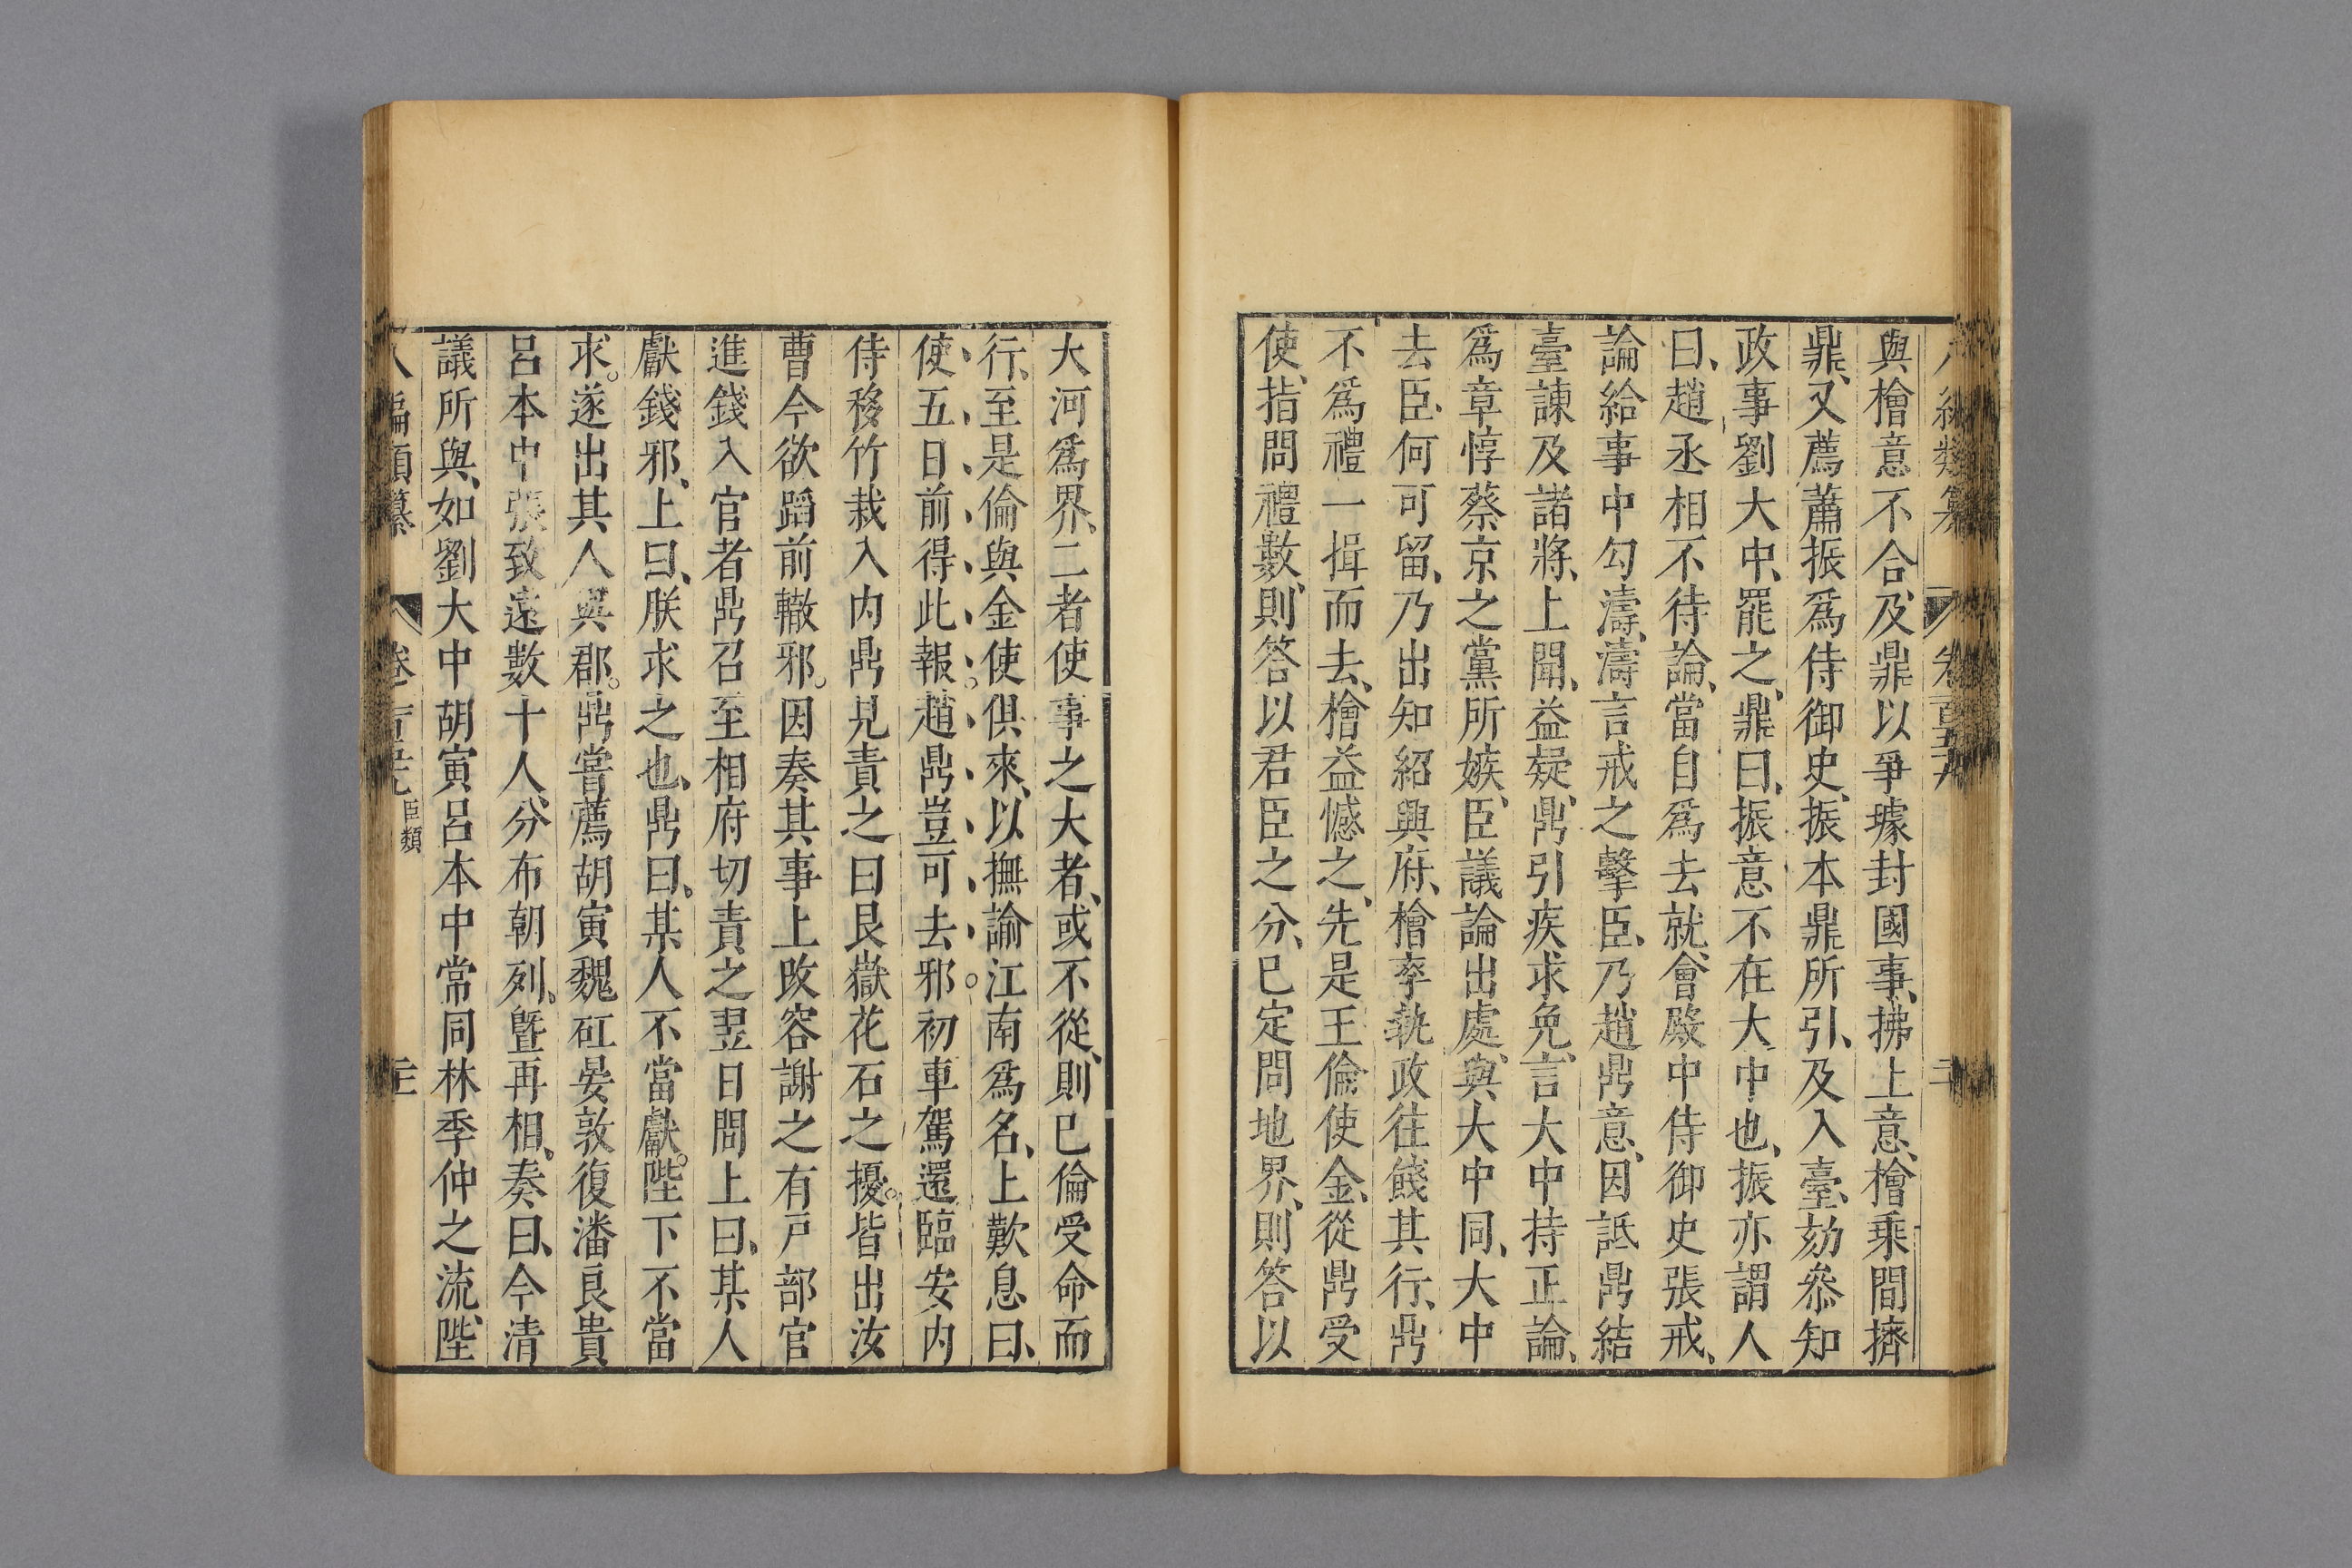 與檜意不合、及鼎以爭璩封國事、拂上意、檜乘間擠
鼎、又薦蕭振爲侍御史、振本鼎所引、及入臺、劾叅知
政事劉大中、罷之、鼎曰、振意不在大中也、振亦謂人
曰、趙丞相不待論、當自爲去就、會殿中侍御史張戒、
論給事中勾濤、濤言戒之擊臣、乃趙鼎意、因詆鼎結
臺諫及諸將、上聞、益疑、鼎引疾求免、言大中持正論、
爲章惇蔡京之黨所嫉、臣議論出處、與大中同、大中
去臣何可留、乃出知紹興府、檜率執政往餞其行、鼎
不爲禮一揖而去、檜益憾之、先是王倫使金、從鼎受
使、指問禮數、則答以君臣之分、已定問地界、則答以
大河爲界、二者使事之大者、或不從、則已倫受命而
行、至是倫與金使俱來、以撫諭江南爲名、上歎息曰、
使五日前得此報。趙鼎豈可去邪。初車駕還臨安内
侍移竹栽入内鼎見責之曰艮嶽花石之擾。皆出汝
曹今欲蹈前轍邪。因奏其事上改容謝之有戸部官
進錢入官者鼎召至相府切責之翌日問上曰、某人
獻錢邪、上曰、朕求之也、鼎曰、某人不當獻。陛下不當
求。遂出其人與郡。鼎嘗薦胡寅魏矼晏敦復潘良貴
呂本中張致遠數十人、分布朝列。曁再相、奏曰、今清
議所與、如劉大中胡寅呂本中常同林季仲之流、陛
臣類